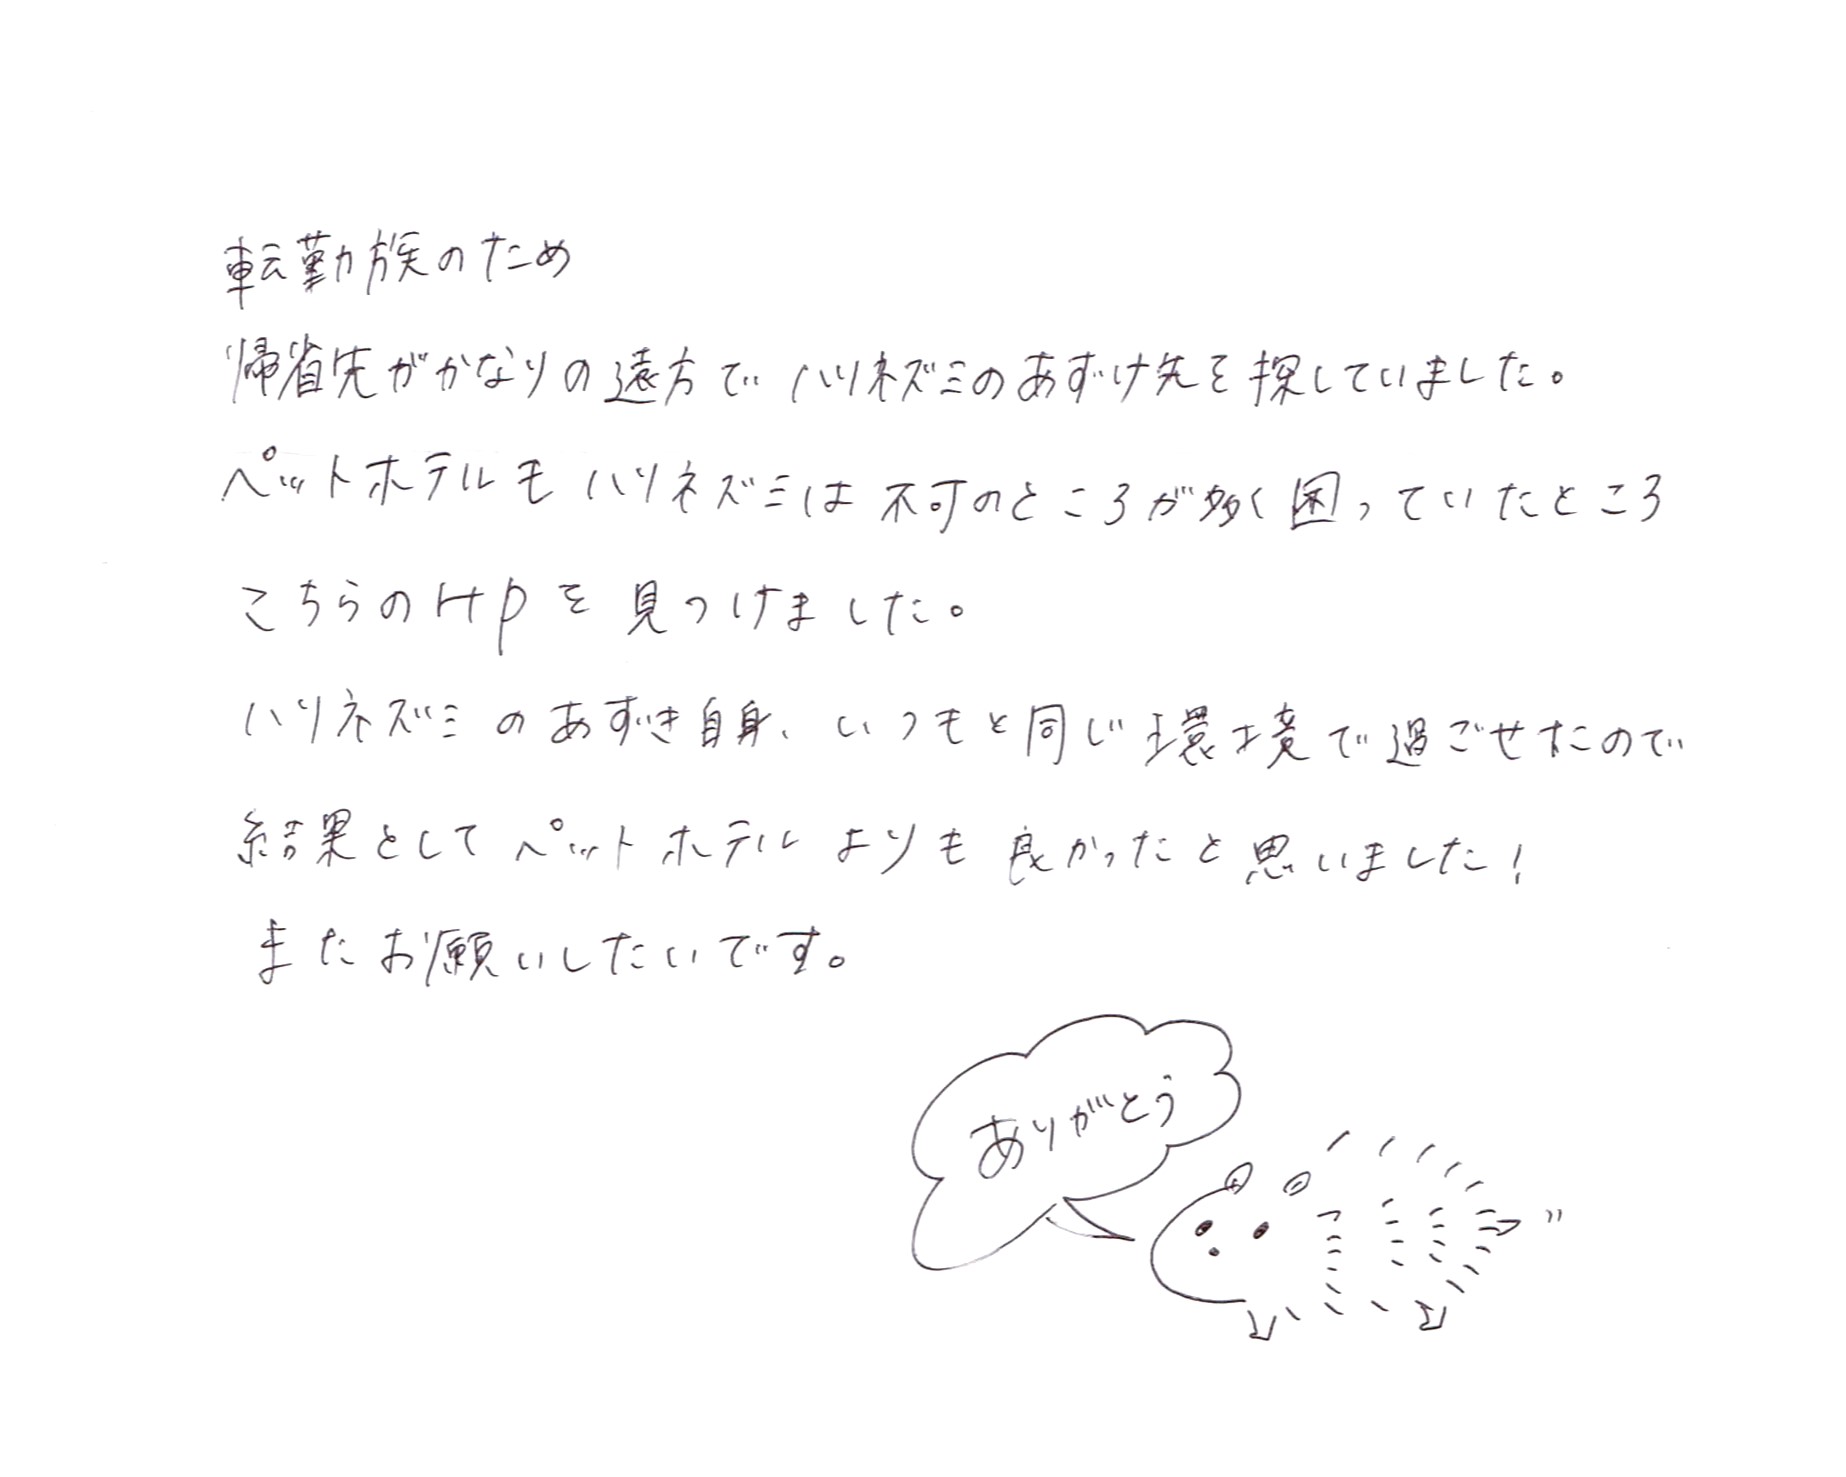 転勤族のため
帰省先がかなりの遠方で ハリネズミのあずけ先を探していました。
ペットホテルも ハリネズミは 不可のところが多く 困っていたところ
こちらのHPを 見つけました。
ハリネズミのあずき自身、いつもと同じ環境で過ごせたので
結果として ペットホテルよりも 良かったと思いました!
またお願いしたいです。
ありがとう